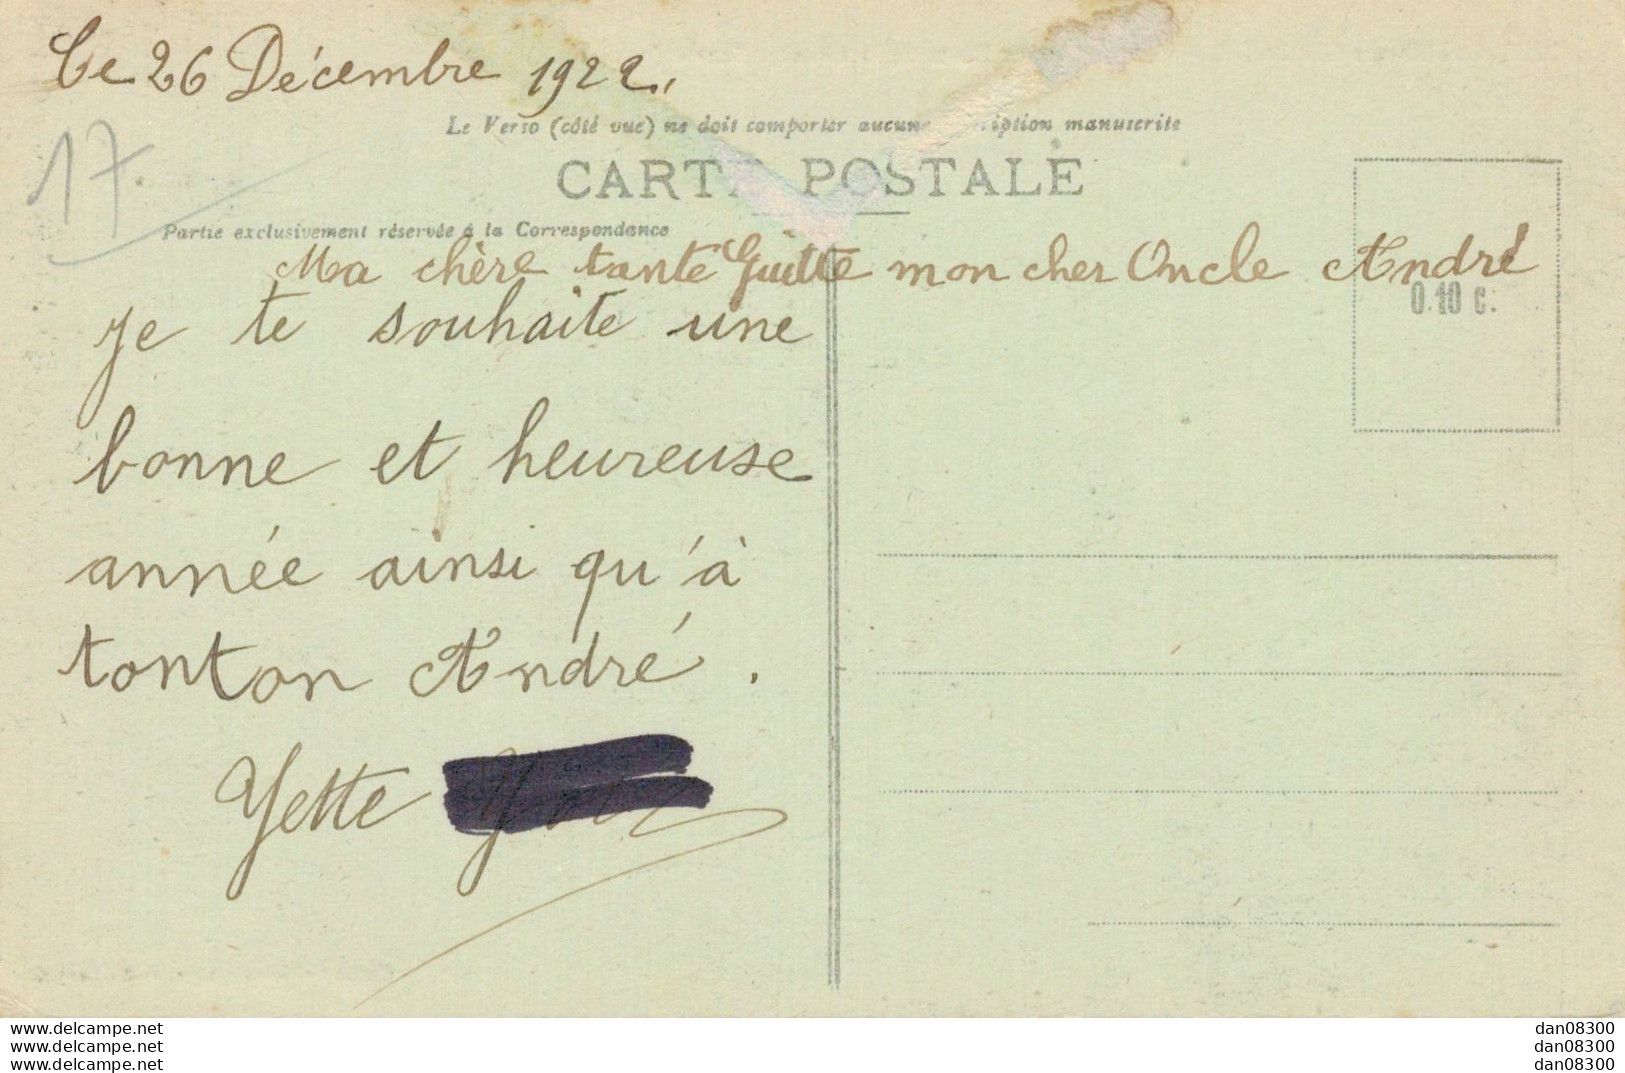 Le 26 Décembre 1922.
17
Le Verso (côté vue) ne doit comporter aucune iption manuscrite
CARTE POSTALE
Partie exclusivement réservée à la Correspondance
Ma chère tante Guitte mon cher Oncle André
0.10 c.
je te souhaite une
bonne et heureuse
année ainsi qu'à
tonton André.
Yette
www.delcampe.net
www.delcampe.net
www.delcampe.net
dan08300
dan08300
dan08300